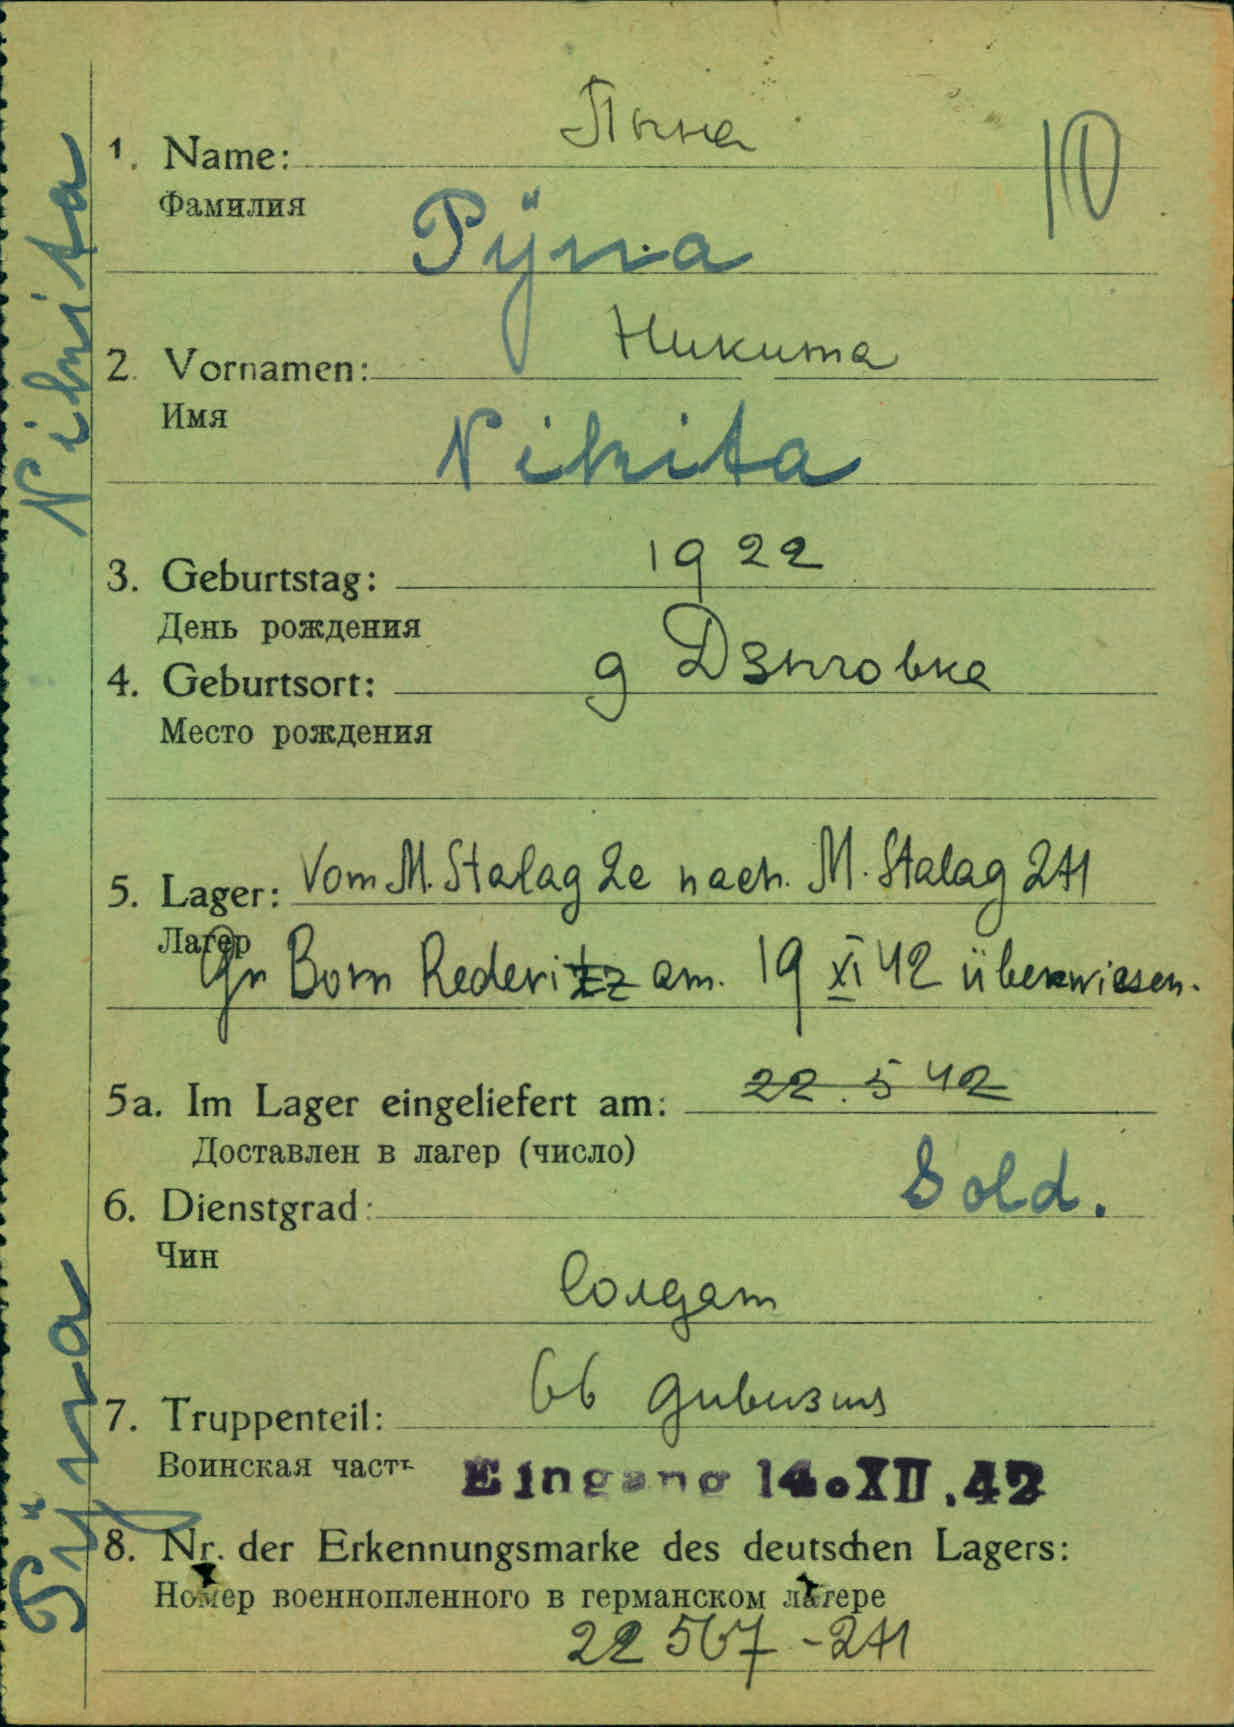 Пына
10
1. Name:
Фамилия
Pÿna
Никита
2. Vornamen:
Имя
Nikita
3. Geburtstag: 1922
День рождения
4. Geburtsort: д Дзыговка
Место рождения
5. Lager: Vom M. Stalag 2e nach. M. Stalag 2H
Лагер
Gr Born Rederitz am. 19 XI 42 überwiesen.
5a. Im Lager eingeliefert am: 22.5 42
Доставлен в лагер (число)
6. Dienstgrad: Sold.
Чин
Солдат
7. Truppenteil: 66 дивизия
Воинская часть
Eingang 14.XII.42
8. Nr. der Erkennungsmarke des deutschen Lagers:
Номер военнопленного в германском лагере
22567 - 2H
Nikita
Pÿna